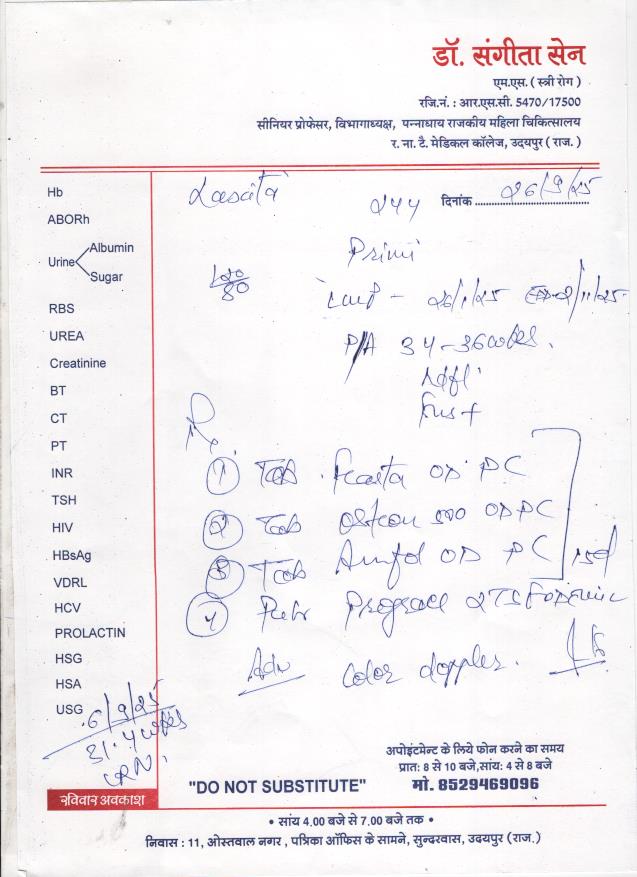 डॉ. संगीता सेन
एम.एस. ( स्त्री रोग )
रजि.नं. : आर.एस.सी. 5470/17500
सीनियर प्रोफेसर, विभागाध्यक्ष, पन्नाधाय राजकीय महिला चिकित्सालय
र. ना. टै. मेडिकल कॉलेज, उदयपुर ( राज. )
दिनांक 26/9/25
24y
Primi
120/80
LMP - 26/1/25 2/11/25
P/A 34-36wks.
Hb
ABORh
Urine Albumin
Sugar
RBS
UREA
Creatinine
BT
CT
PT
INR
TSH
HIV
HBsAg
VDRL
HCV
PROLACTIN
HSG
HSA
USG
6/9/25
31.4wks
Rx
① Tab. OD PC
② Tab 500 OD PC
③ Tab OD PC
④
Adv Color doppler.
रविवार अवकाश
"DO NOT SUBSTITUTE"
अपोइंटमेन्ट के लिये फोन करने का समय
प्रात: 8 से 10 बजे,सांय: 4 से 8 बजे
मो. 8529469096
• सांय 4.00 बजे से 7.00 बजे तक •
निवास : 11, ओस्तवाल नगर , पत्रिका ऑफिस के सामने, सुन्दरवास, उदयपुर (राज.)